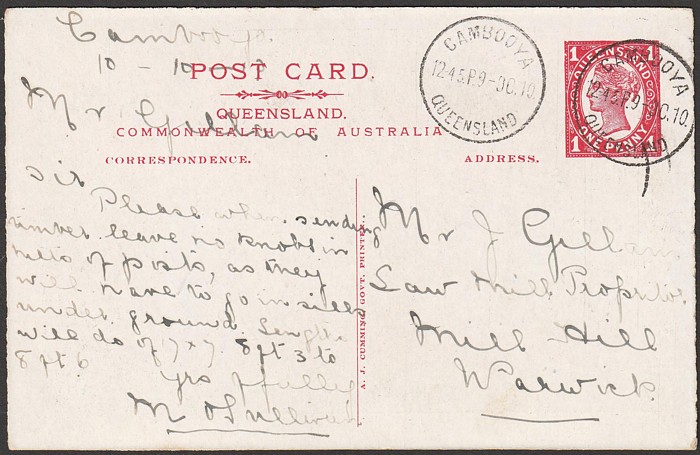 Cambooya
10 - 10 -
POST CARD.
QUEENSLAND.
Mr Gillam
COMMONWEALTH OF AUSTRALIA
CORRESPONDENCE.
ADDRESS.
Sir
Please when sending
timber leave no knobs in
of posts, as they
will have to go in sills
under ground. Lengths
will do of 7 x 7 8 ft 3 to
8 ft 6
yrs ffully
M O'Sullivan
A. J. CUMMING, GOVT. PRINTER.
Mr J Gillam
Saw Mill Proprietor
Mill Hill
Warwick
CAMBOOYA
12.45.P.9-OC.10
QUEENSLAND
1 QUEENSLAND 1
1 ONE PENNY
CAMBOOYA
12.45.P.9-OC.10
QUEENSLAND